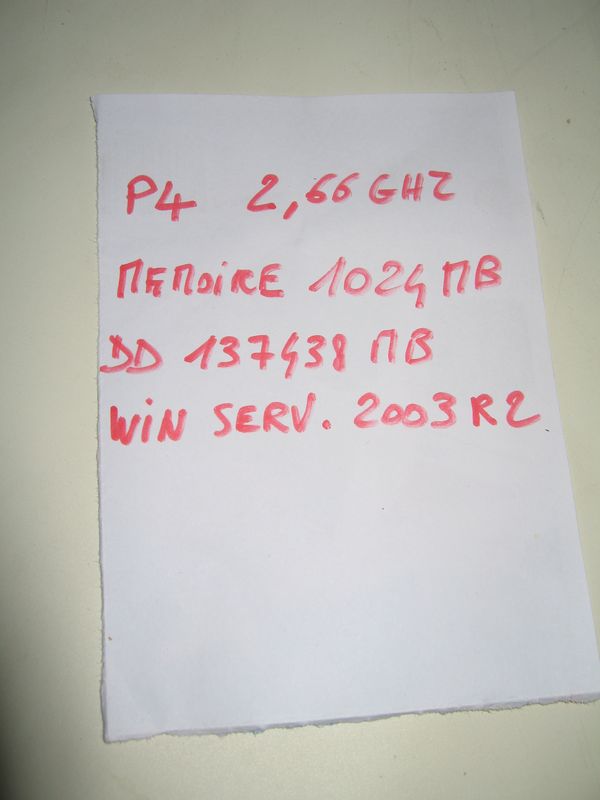 P4 2,66 GHZ
MEMOiRE 1024 MB
DD 137438 MB
WiN SERV. 2003 R2